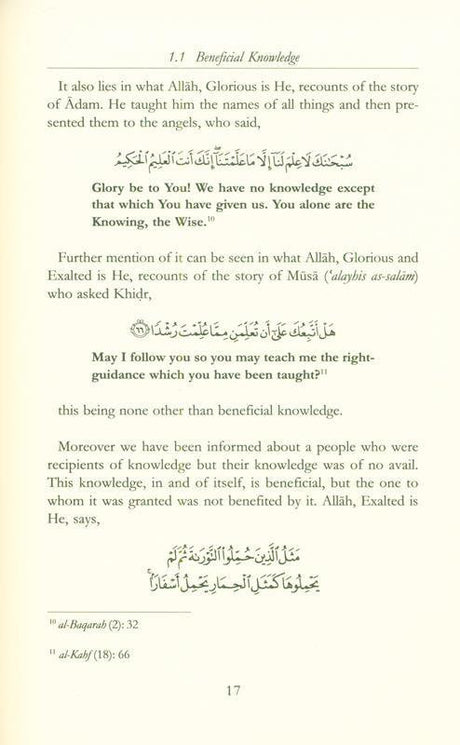 1.1 Beneficial Knowledge
It also lies in what Allāh, Glorious is He, recounts of the story
of Ādam. He taught him the names of all things and then pre-
sented them to the angels, who said,
سُبْحَٰنَكَ لَا عِلْمَ لَنَآ إِلَّا مَا عَلَّمْتَنَآ ۖ إِنَّكَ أَنتَ ٱلْعَلِيمُ ٱلْحَكِيمُ
Glory be to You! We have no knowledge except
that which You have given us. You alone are the
Knowing, the Wise.¹⁰
Further mention of it can be seen in what Allāh, Glorious and
Exalted is He, recounts of the story of Mūsā (ʿalayhis as-salām)
who asked Khiḍr,
هَلْ أَتَّبِعُكَ عَلَىٰٓ أَن تُعَلِّمَنِ مِمَّا عُلِّمْتَ رُشْدًا ﴿٦٦﴾
May I follow you so you may teach me the right-
guidance which you have been taught?¹¹
this being none other than beneficial knowledge.
Moreover we have been informed about a people who were
recipients of knowledge but their knowledge was of no avail.
This knowledge, in and of itself, is beneficial, but the one to
whom it was granted was not benefited by it. Allāh, Exalted is
He, says,
مَثَلُ ٱلَّذِينَ حُمِّلُوا۟ ٱلتَّوْرَىٰةَ ثُمَّ لَمْ
يَحْمِلُوهَا كَمَثَلِ ٱلْحِمَارِ يَحْمِلُ أَسْفَارًۢا ۚ
¹⁰ al-Baqarah (2): 32
¹¹ al-Kahf (18): 66
17